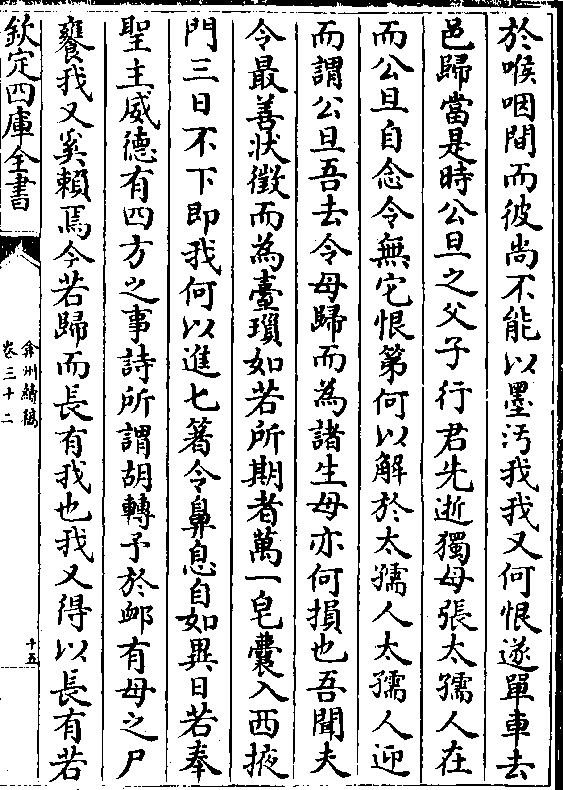 於喉咽間而彼尚不能以墨汚我我又何恨遂單車去
邑歸當是時公旦之父子行君先逝獨母張太孺人在
而公旦自念令無它恨第何以解於太孺人太孺人迎
而謂公旦吾去令母歸而為諸生母亦何損也吾聞夫
令最善狀徴而為臺瑣如若所期者萬一皂囊入西掖
門三日不下即我何以進七箸令鼻息自如異日若奉
聖主威德有四方之事詩所謂胡轉予於䘏有母之尸
饔我又奚賴焉今若歸而長有我也我又得以長有若
欽定四庫全書
弇州續稿
卷三十二
十五